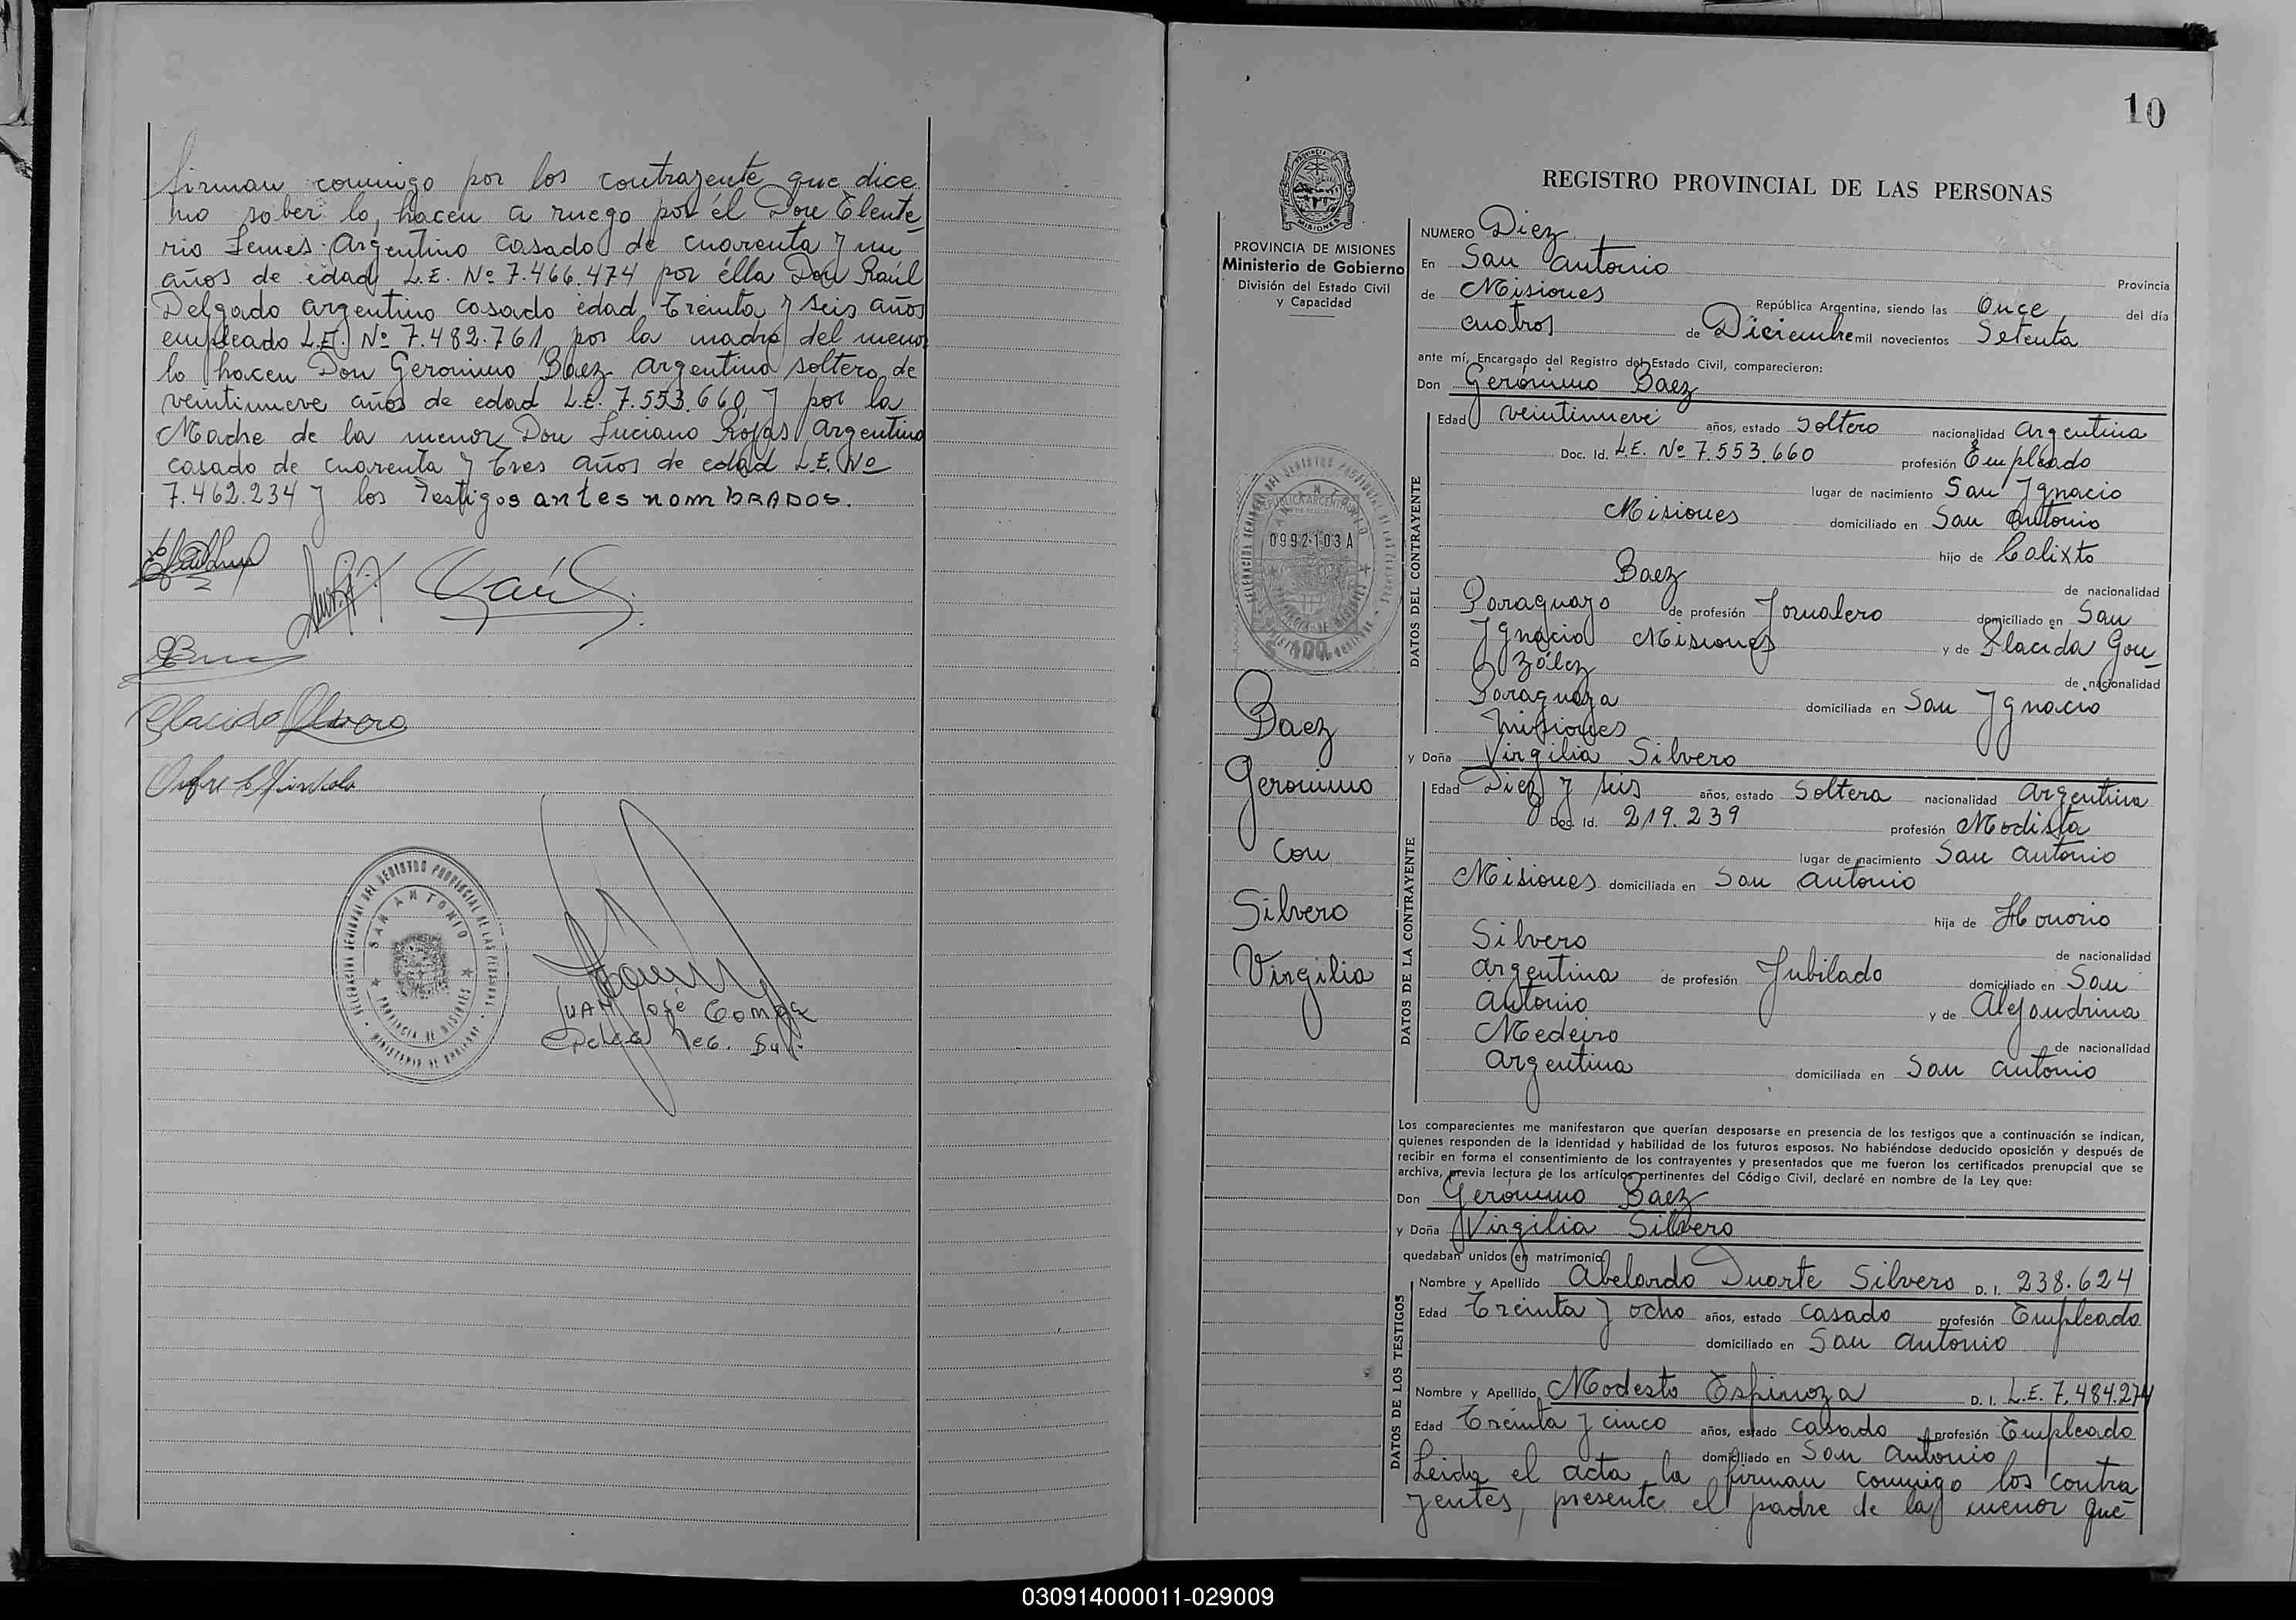 firman conmigo por los contrayente que dice
no saber lo hacen a ruego por él Don Eleute
rio Lemes Argentino casado de cuarenta y un
años de edad L.E. Nº 7.466.474 por élla Don Raúl
Delgado argentino casado edad treinta y seis años
empleado L.E. Nº 7.482.761 por la madre del menor
lo hacen Don Geronimo Baez argentino soltero de
veintinueve años de edad L.E. 7.553.660 y por la
Madre de la menor Don Luciano Rojas Argentino
casado de cuarenta y tres años de edad L.E. Nº
7.462.234 y los Testigos antes nombrados.
Placido Olivero
SAN ANTONIO
PROVINCIA DE MISIONES
JUAN José Gomez
10
PROVINCIA DE MISIONES
Ministerio de Gobierno
División del Estado Civil
y Capacidad
0992103 A
Baez
Geronimo
Con
Silvero
Virgilia
REGISTRO PROVINCIAL DE LAS PERSONAS
NUMERO Diez
En San Antonio Provincia
de Misiones República Argentina, siendo las Once del día
cuatros de Diciembre mil novecientos Setenta
ante mí, Encargado del Registro del Estado Civil, comparecieron:
Don Gerónimo Baez
DATOS DEL CONTRAYENTE
Edad veintinueve años, estado Soltero nacionalidad Argentina
Doc. Id. L.E. Nº 7.553.660 profesión Empleado
lugar de nacimiento San Ygnacio
Misiones domiciliado en San Antonio
hijo de Calixto
Baez de nacionalidad
Paraguayo de profesión Jornalero domiciliado en San
Ygnacio Misiones y de Placida Gon
zález de nacionalidad
Paraguaya domiciliada en San Ygnacio
Misiones
y Doña Virgilia Silvero
DATOS DE LA CONTRAYENTE
Edad Diez y seis años, estado Soltera nacionalidad Argentina
Doc. Id. 219.239 profesión Modista
lugar de nacimiento San Antonio
Misiones domiciliada en San Antonio
hija de Honorio
Silvero de nacionalidad
Argentina de profesión Jubilado domiciliado en San
Antonio y de Alejandrina
Medeiro de nacionalidad
Argentina domiciliada en San Antonio
Los comparecientes me manifestaron que querían desposarse en presencia de los testigos que a continuación se indican,
quienes responden de la identidad y habilidad de los futuros esposos. No habiéndose deducido oposición y después de
recibir en forma el consentimiento de los contrayentes y presentados que me fueron los certificados prenupcial que se
archiva, previa lectura de los artículos pertinentes del Código Civil, declaré en nombre de la Ley que:
Don Gerónimo Baez
y Doña Virgilia Silvero
quedaban unidos en matrimonio
DATOS DE LOS TESTIGOS
Nombre y Apellido Abelardo Duarte Silvero D. I. 238.624
Edad Treinta y ocho años, estado casado profesión Empleado
domiciliado en San Antonio
Nombre y Apellido Modesto Espinoza D. I. L.E. 7.484.274
Edad Treinta y cinco años, estado casado profesión Empleado
domiciliado en San Antonio
Leida el acta la firman conmigo los contra
yentes, presente el padre de la menor que
030914000011-029009